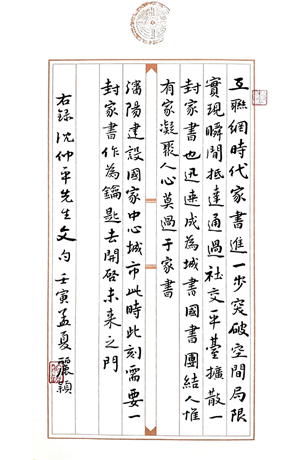 互聯網時代家書進一步突破空間局限
實現瞬間抵達通過社交平臺擴散一
封家書也迅速成為城書國書團結人惟
有家凝聚人心莫過于家書
瀋陽建設國家中心城市此時此刻需要一
封家書作為鑰匙去開啓未來之門
右録沈仲平先生文句壬寅孟夏麗穎